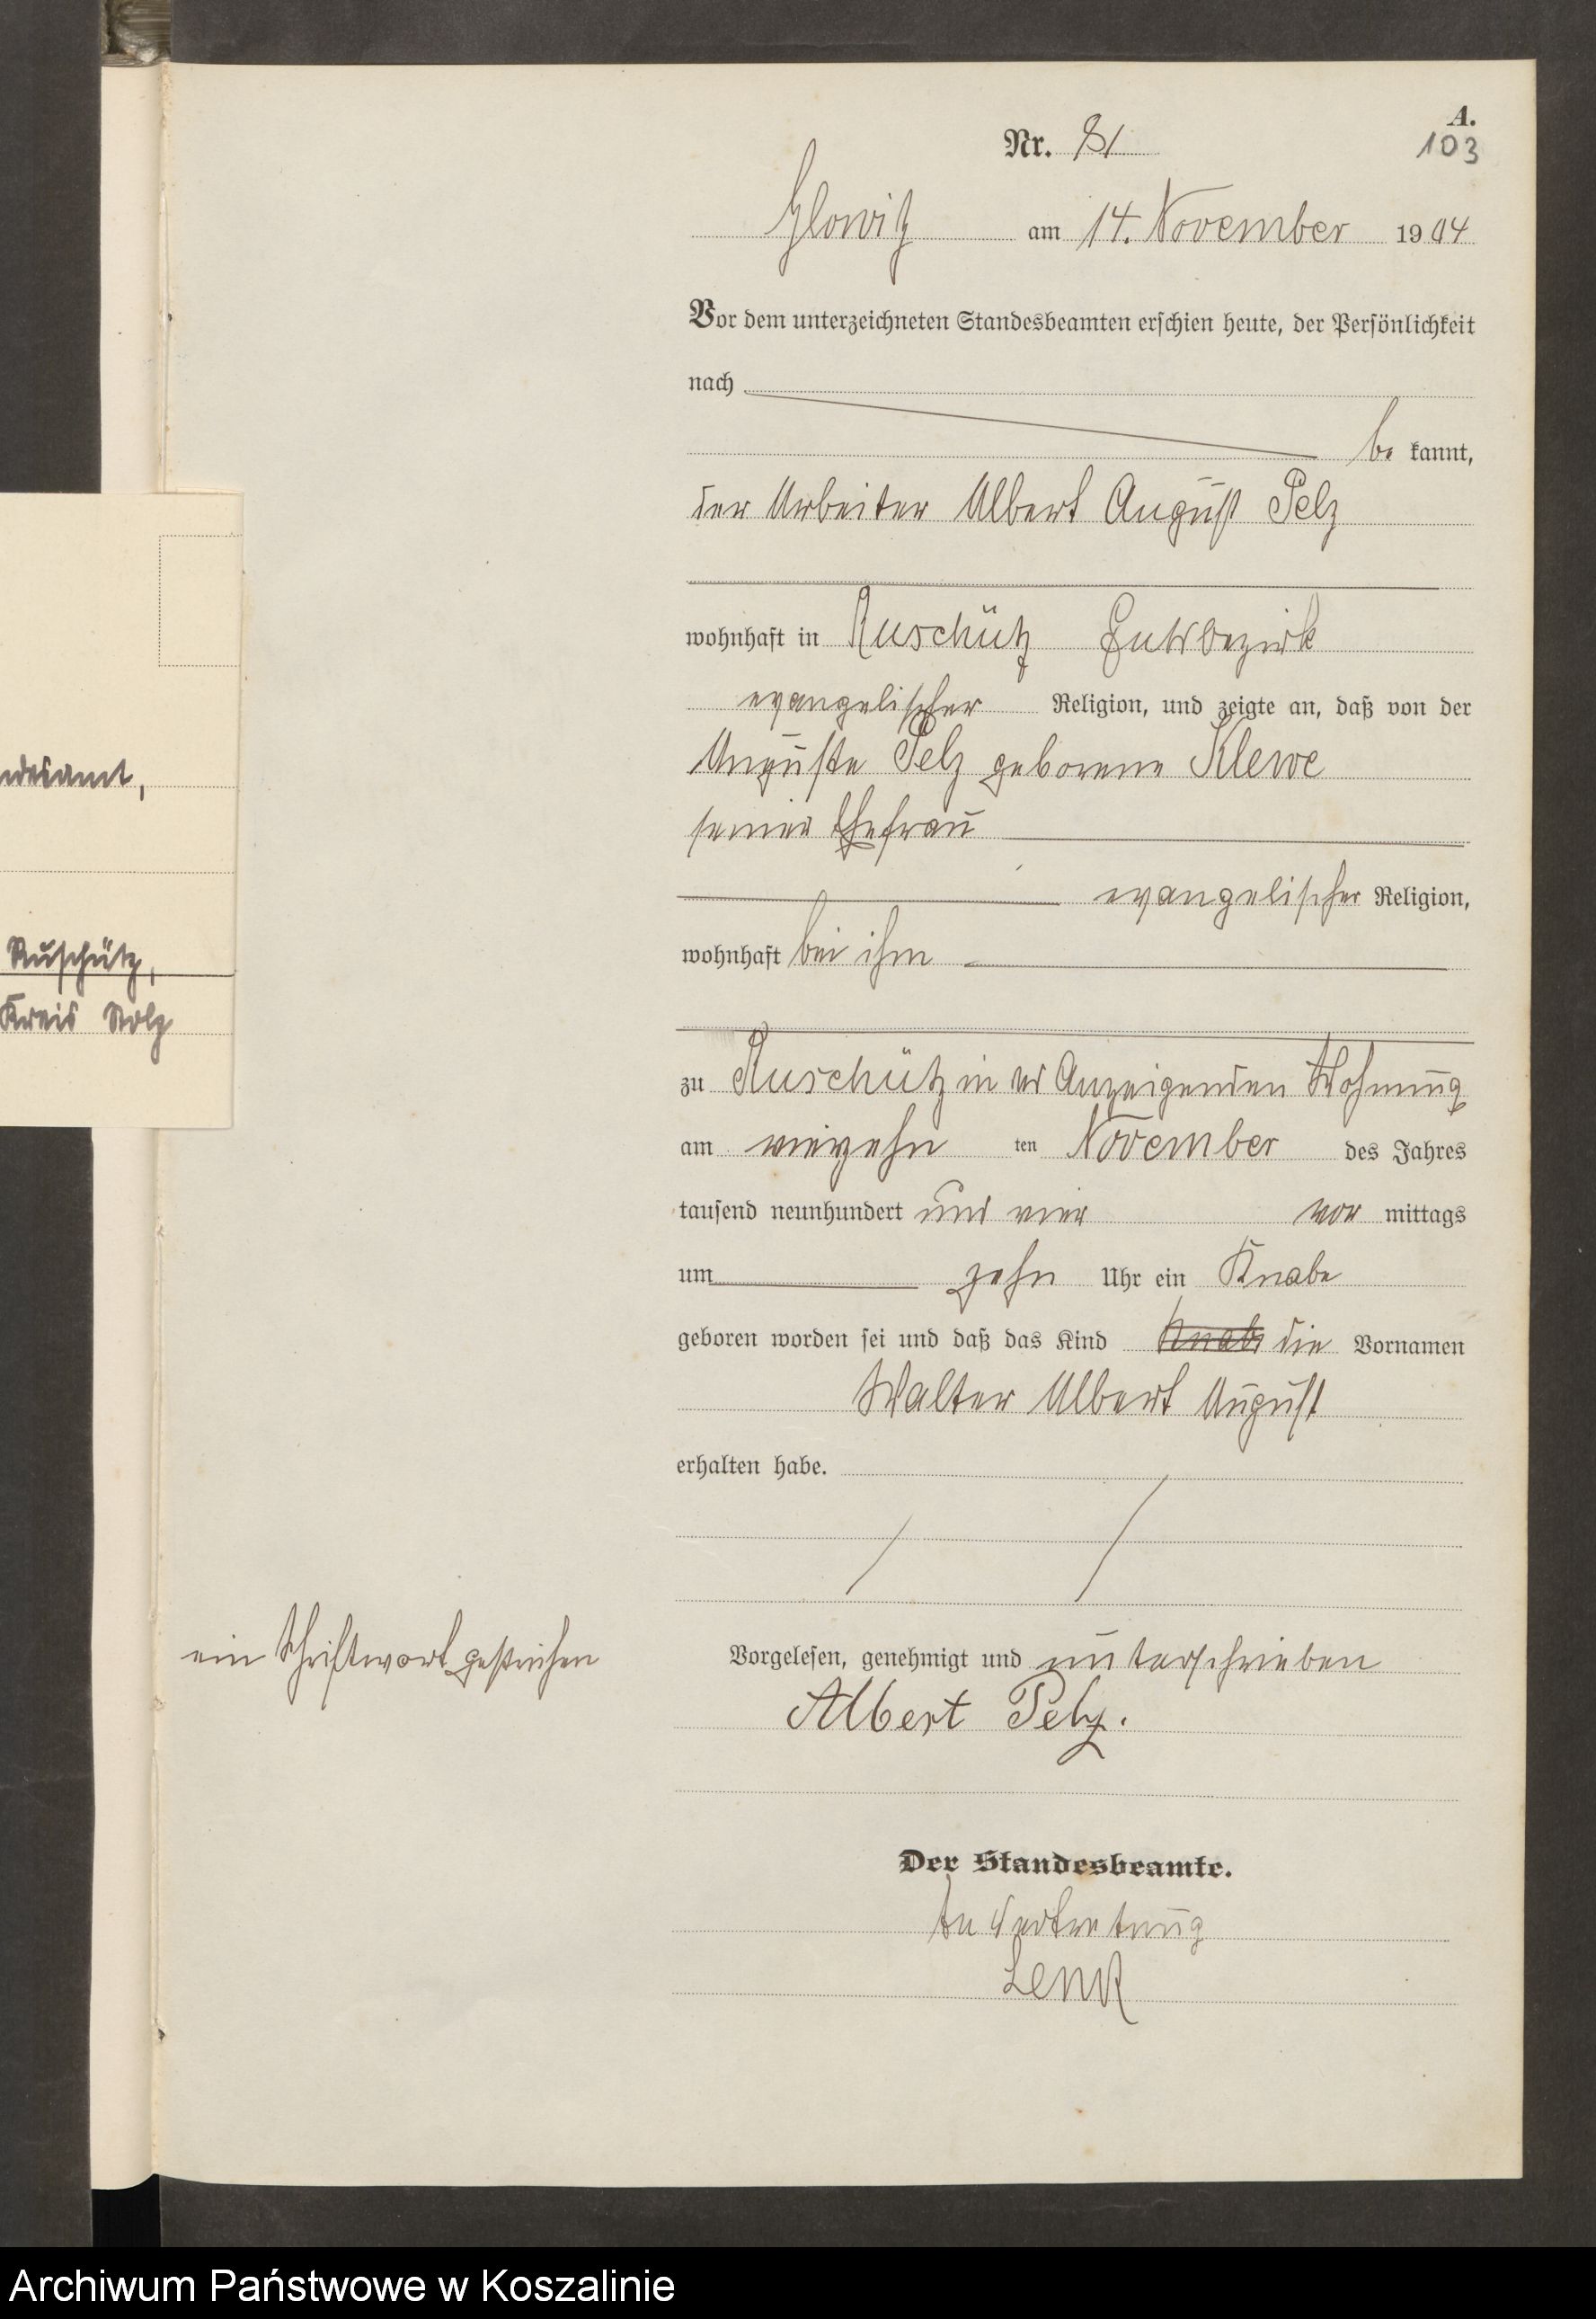 A.
Nr. 81
103
Glowitz am 14. November 1904
Vor dem unterzeichneten Standesbeamten erschien heute, der Persönlichkeit
nach
be kannt,
der Arbeiter Albert August Pelz
wohnhaft in Ruschütz Gutsbezirk
evangelischer Religion, und zeigte an, daß von der
Auguste Pelz geborene Klewe
seiner Ehefrau
evangelischer Religion,
wohnhaft bei ihm
zu Ruschütz in des Anzeigenden Wohnung
am vierzehn ten November des Jahres
tausend neunhundert und vier vor mittags
um zehn Uhr ein Knabe
geboren worden sei und daß das Kind Knabe die Vornamen
Walter Albert August
erhalten habe.
ein Schriftwort gestrichen
Vorgelesen, genehmigt und unterschrieben
Albert Pelz.
Der Standesbeamte.
In Vertretung
Lenk
ndesamt,
Ruschütz,
Kreis Stolp
Archiwum Państwowe w Koszalinie